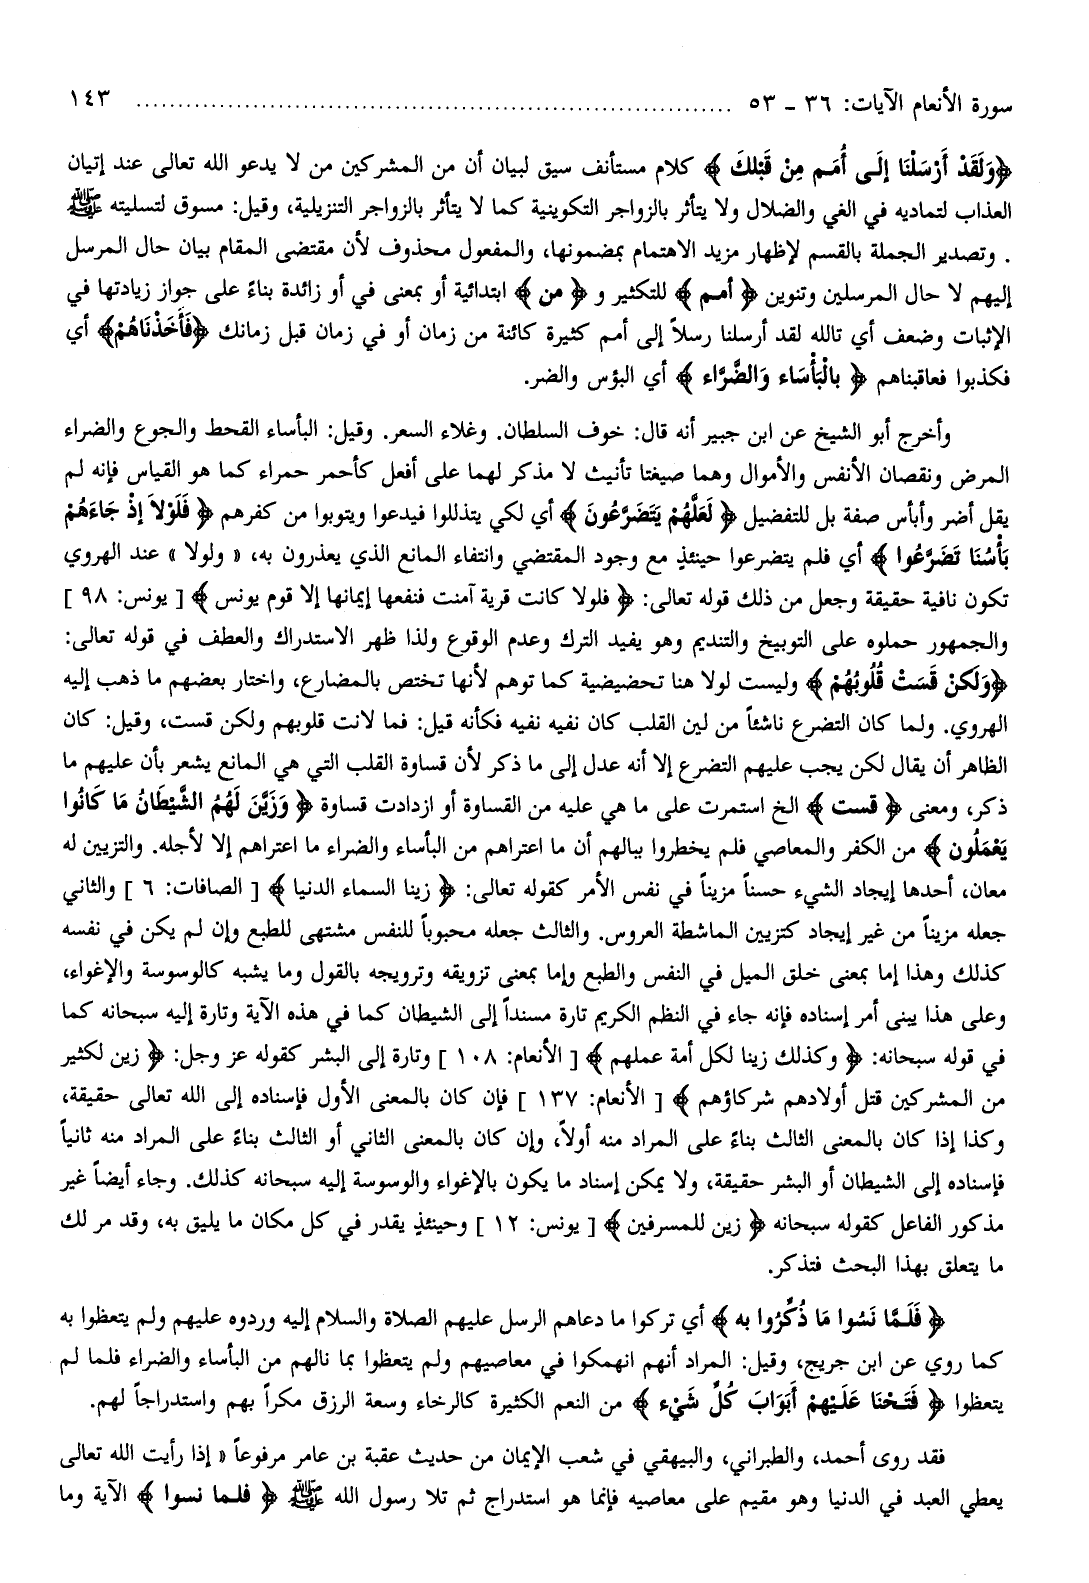 سورة الأنعام الآيات: ٣٦ ـ ٥٣ ........................................................................ ١٤٣
﴿وَلَقَدْ أَرَسَلْنَا إِلَـى أُمَـم مِنْ قَبْلكَ﴾ كلام مستأنف سيق لبيان أن من المشركين من لا يدعو الله تعالى عند إتيان
العذاب لتماديه في الغي والضلال ولا يتأثر بالزواجر التكوينية كما لا يتأثر بالزواجر التنزيلية، وقيل: مسوق لتسليته ﷺ
. وتصدير الجملة بالقسم لإظهار مزيد الاهتمام بمضمونها، والمفعول محذوف لأن مقتضى المقام بيان حال المرسل
إليهم لا حال المرسلين وتنوين ﴿أمـم﴾ للتكثير و ﴿من﴾ ابتدائية أو بمعنى في أو زائدة بناءً على جواز زيادتها في
الإثبات وضعف أي تالله لقد أرسلنا رسلاً إلى أمم كثيرة كائنة من زمان أو في زمان قبل زمانك ﴿فَأَخَذْنَاهُمْ﴾ أي
فكذبوا فعاقبناهم ﴿بالْبَأْسَاء وَالضَّرَّاء﴾ أي البؤس والضر.
وأخرج أبو الشيخ عن ابن جبير أنه قال: خوف السلطان. وغلاء السعر. وقيل: البأساء القحط والجوع والضراء
المرض ونقصان الأنفس والأموال وهما صيغتا تأنيث لا مذكر لهما على أفعل كأحمر حمراء كما هو القياس فإنه لم
يقل أضر وأبأس صفة بل للتفضيل ﴿لَعَلَّهُمْ يَتَضَرَّعُونَ﴾ أي لكي يتذللوا فيدعوا ويتوبوا من كفرهم ﴿فَلَوْلاَ إِذْ جَاءَهُمْ
بَأْسُنَا تَضَرَّعُوا﴾ أي فلم يتضرعوا حينئذٍ مع وجود المقتضي وانتفاء المانع الذي يعذرون به، «ولولا» عند الهروي
تكون نافية حقيقة وجعل من ذلك قوله تعالى: ﴿فلولا كانت قرية آمنت فنفعها إيمانها إلا قوم يونس﴾ [يونس: ٩٨]
والجمهور حملوه على التوبيخ والتنديم وهو يفيد الترك وعدم الوقوع ولذا ظهر الاستدراك والعطف في قوله تعالى:
﴿وَلَكنْ قَسَتْ قُلُوبُهُمْ﴾ وليست لولا هنا تحضيضية كما توهم لأنها تختص بالمضارع، واختار بعضهم ما ذهب إليه
الهروي. ولما كان التضرع ناشئاً من لين القلب كان نفيه نفيه فكأنه قيل: فما لانت قلوبهم ولكن قست، وقيل: كان
الظاهر أن يقال لكن يجب عليهم التضرع إلا أنه عدل إلى ما ذكر لأن قساوة القلب التي هي المانع يشعر بأن عليهم ما
ذكر، ومعنى ﴿قست﴾ الخ استمرت على ما هي عليه من القساوة أو ازدادت قساوة ﴿وَزَيَّنَ لَهُمُ الشَّيْطَانُ مَا كَانُوا
يَعْمَلُون﴾ من الكفر والمعاصي فلم يخطروا ببالهم أن ما اعتراهم من البأساء والضراء ما اعتراهم إلا لأجله. والتزيين له
معان، أحدها إيجاد الشيء حسناً مزيناً في نفس الأمر كقوله تعالى: ﴿زينا السماء الدنيا﴾ [الصافات: ٦] والثاني
جعله مزيناً من غير إيجاد كتزيين الماشطة العروس. والثالث جعله محبوباً للنفس مشتهى للطبع وإن لم يكن في نفسه
كذلك وهذا إما بمعنى خلق الميل في النفس والطبع وإما بمعنى تزويقه وترويجه بالقول وما يشبه كالوسوسة والإغواء،
وعلى هذا يبنى أمر إسناده فإنه جاء في النظم الكريم تارة مسنداً إلى الشيطان كما في هذه الآية وتارة إليه سبحانه كما
في قوله سبحانه: ﴿وكذلك زينا لكل أمة عملهم﴾ [الأنعام: ١٠٨] وتارة إلى البشر كقوله عز وجل: ﴿زين لكثير
من المشركين قتل أولادهم شركاؤهم﴾ [الأنعام: ١٣٧] فإن كان بالمعنى الأول فإسناده إلى الله تعالى حقيقة،
وكذا إذا كان بالمعنى الثالث بناءً على المراد منه أولاً، وإن كان بالمعنى الثاني أو الثالث بناءً على المراد منه ثانياً
فإسناده إلى الشيطان أو البشر حقيقة، ولا يمكن إسناد ما يكون بالإغواء والوسوسة إليه سبحانه كذلك. وجاء أيضاً غير
مذكور الفاعل كقوله سبحانه ﴿زين للمسرفين﴾ [يونس: ١٢] وحينئذٍ يقدر في كل مكان ما يليق به، وقد مر لك
ما يتعلق بهذا البحث فتذكر.
﴿فَلَمَّا نَسُوا مَا ذُكِّرُوا به﴾ أي تركوا ما دعاهم الرسل عليهم الصلاة والسلام إليه وردوه عليهم ولم يتعظوا به
كما روي عن ابن جريج، وقيل: المراد أنهم انهمكوا في معاصيهم ولم يتعظوا بما نالهم من البأساء والضراء فلما لم
يتعظوا ﴿فَتَحْنَا عَلَيْهِمْ أَبَوَابَ كُلِّ شَيْء﴾ من النعم الكثيرة كالرخاء وسعة الرزق مكراً بهم واستدراجاً لهم.
فقد روى أحمد، والطبراني، والبيهقي في شعب الإيمان من حديث عقبة بن عامر مرفوعاً «إذا رأيت الله تعالى
يعطي العبد في الدنيا وهو مقيم على معاصيه فإنما هو استدراج ثم تلا رسول الله ﷺ ﴿فلـما نسوا﴾ الآية وما